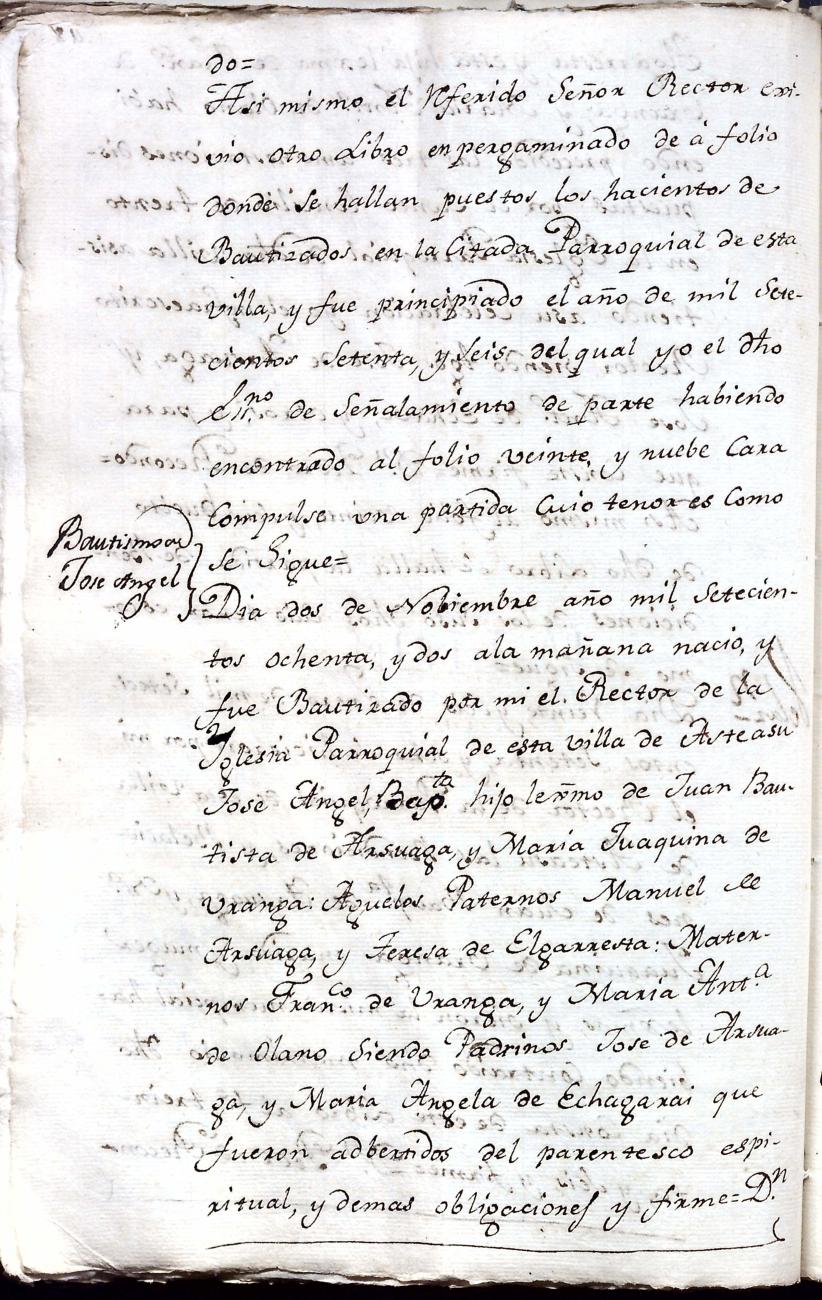 do=
Asi mismo el Rferido Señor Rector exi-
vio otro Libro enpergaminado de á folio
donde se hallan puestos los hacientos de
Bautizados en la Citada Parroquial de esta
villa, y fue principiado el año de mil Sete-
cientos Setenta, y Seis, del qual yo el dho
Ssno de Señalamiento de parte habiendo
encontrado al folio veinte, y nuebe Cara
Compulse una partida Cuio tenor es Como
se Sigue=
Bautismo de
Jose Angel
Dia dos de Nobiembre año mil setecien-
tos ochenta, y dos ala mañana nacio, y
fue Bautizado por mi el Rector de la
Yglesia Parroquial de esta villa de Asteasu
Jose Angel, Bapta hijo lexmo de Juan Bau-
tista de Arsuaga, y Maria Juaquina de
Vranga: Aguelos Paternos Manuel de
Arsuaga, y Teresa de Elgarresta: Mater-
nos Franco de Vranga, y Maria Anta
de Olano Siendo Padrinos Jose de Arsua-
ga, y Maria Angela de Echagarai que
fueron adbertidos del parentesco espi-
ritual, y demas obligaciones y firme= Dn